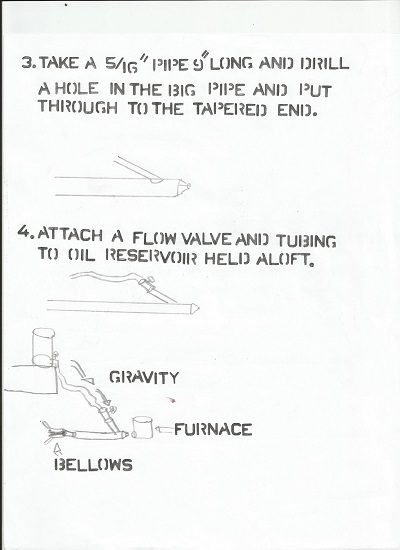 3. TAKE A 5/16" PIPE 9" LONG AND DRILL
A HOLE IN THE BIG PIPE AND PUT
THROUGH TO THE TAPERED END.
4. ATTACH A FLOW VALVE AND TUBING
TO OIL RESERVOIR HELD ALOFT.
GRAVITY
FURNACE
BELLOWS